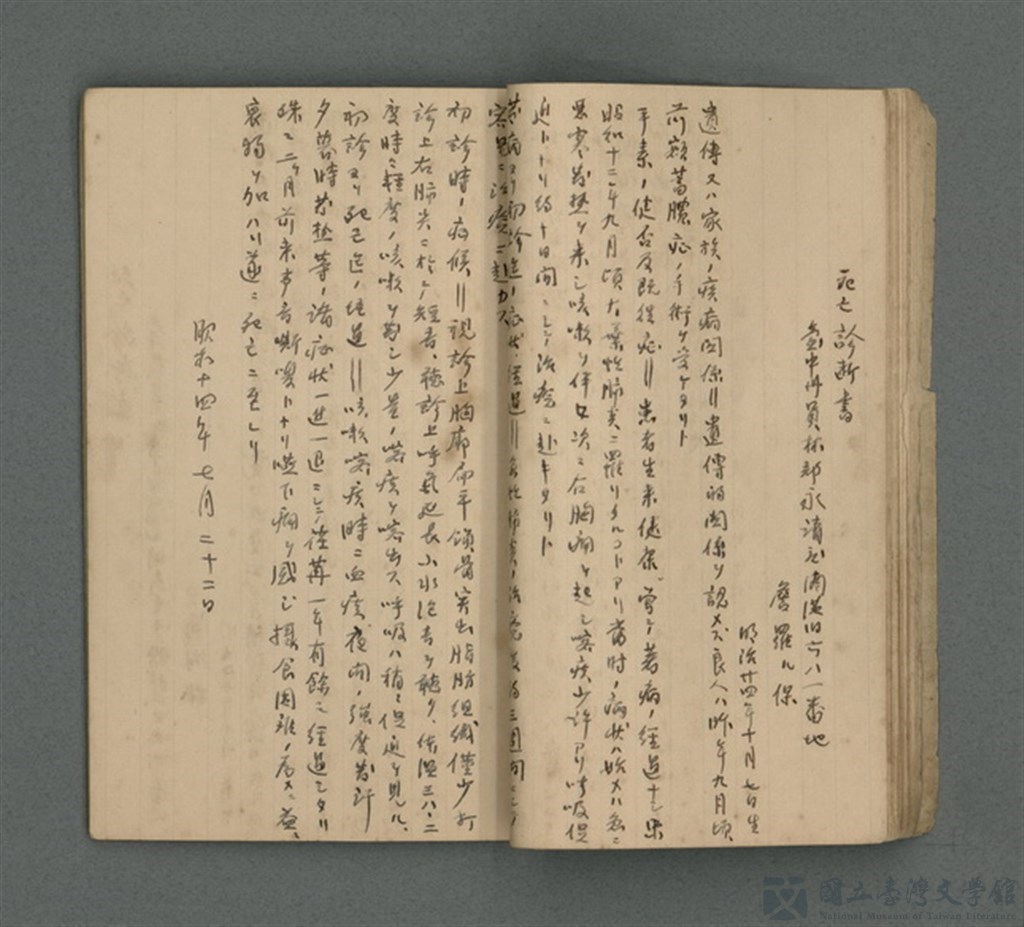 死亡診断書
台中州員林郡永靖庄湳港旧六八一番地
詹羅氏保
明治廿四年十月七日生
遺傳又ハ家族ノ疾病関係||遺傳的関係ヲ認メズ良人ハ昨年九月頃
前額蓄膿症ノ手術ヲ受ケタリト
平素ノ健否及既往症||患者生来健康、嘗テ著病ノ経過ナシ
昭和十二年九月頃大葉性肺炎ニ罹リタルコトアリ当時ノ病状ハ始メハ急ニ
悪寒発熱ヲ来シ咳嗽ヲ伴ヒ次ニ右胸痛ヲ起シ喀痰少許アリ呼吸促
迫トナリ約十日間ニシテ治癒ニ赴キタリト
発病ヨリ初診迄ノ症状、経過||
初診時ノ症候||視診上胸廓扁平鎖骨突出脂肪組織僅少打
診上右肺尖ニ於テ短音、聴診上呼気延長小水泡音ヲ聴ク、体温三八、二
度時ニ軽度ノ咳嗽ヲ発シ少量ノ喀痰ヲ喀出ス呼吸ハ稍々促迫ヲ見ル、
初診ヨリ死亡迄ノ経過||咳嗽喀痰時ニ血痰夜間ノ強度発汗
夕暮時発熱等ノ諸症状一進一退ニシテ荏苒一年有餘ニ経過シタリ
殊ニ二ヶ月前来声音嘶嗄トナリ嚥下痛ヲ感ジ摂食困難ノ為メ、益々
衰弱ヲ加ハリ遂ニ死亡ニ至レリ
昭和十四年七月二十二日
國立臺灣文學館
National Museum of Taiwan Literature